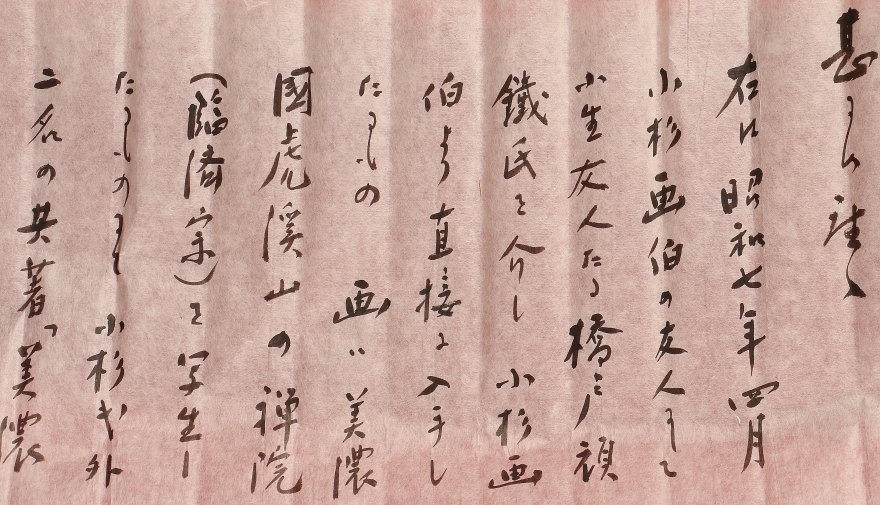 右ハ昭和七年四月
小杉画伯の友人にて
小生友人たる橋戸頑
鐵氏を介し小杉画
伯より直接に入手し
たるもの 画ハ美濃
國虎渓山の禅院
（臨済宗）を写生し
たるものにて小杉氏外
二名の共著「美濃